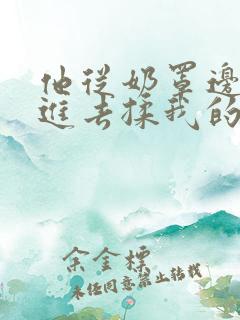 他从奶罩边
进去揉我的
余金标
未经同意禁止转载